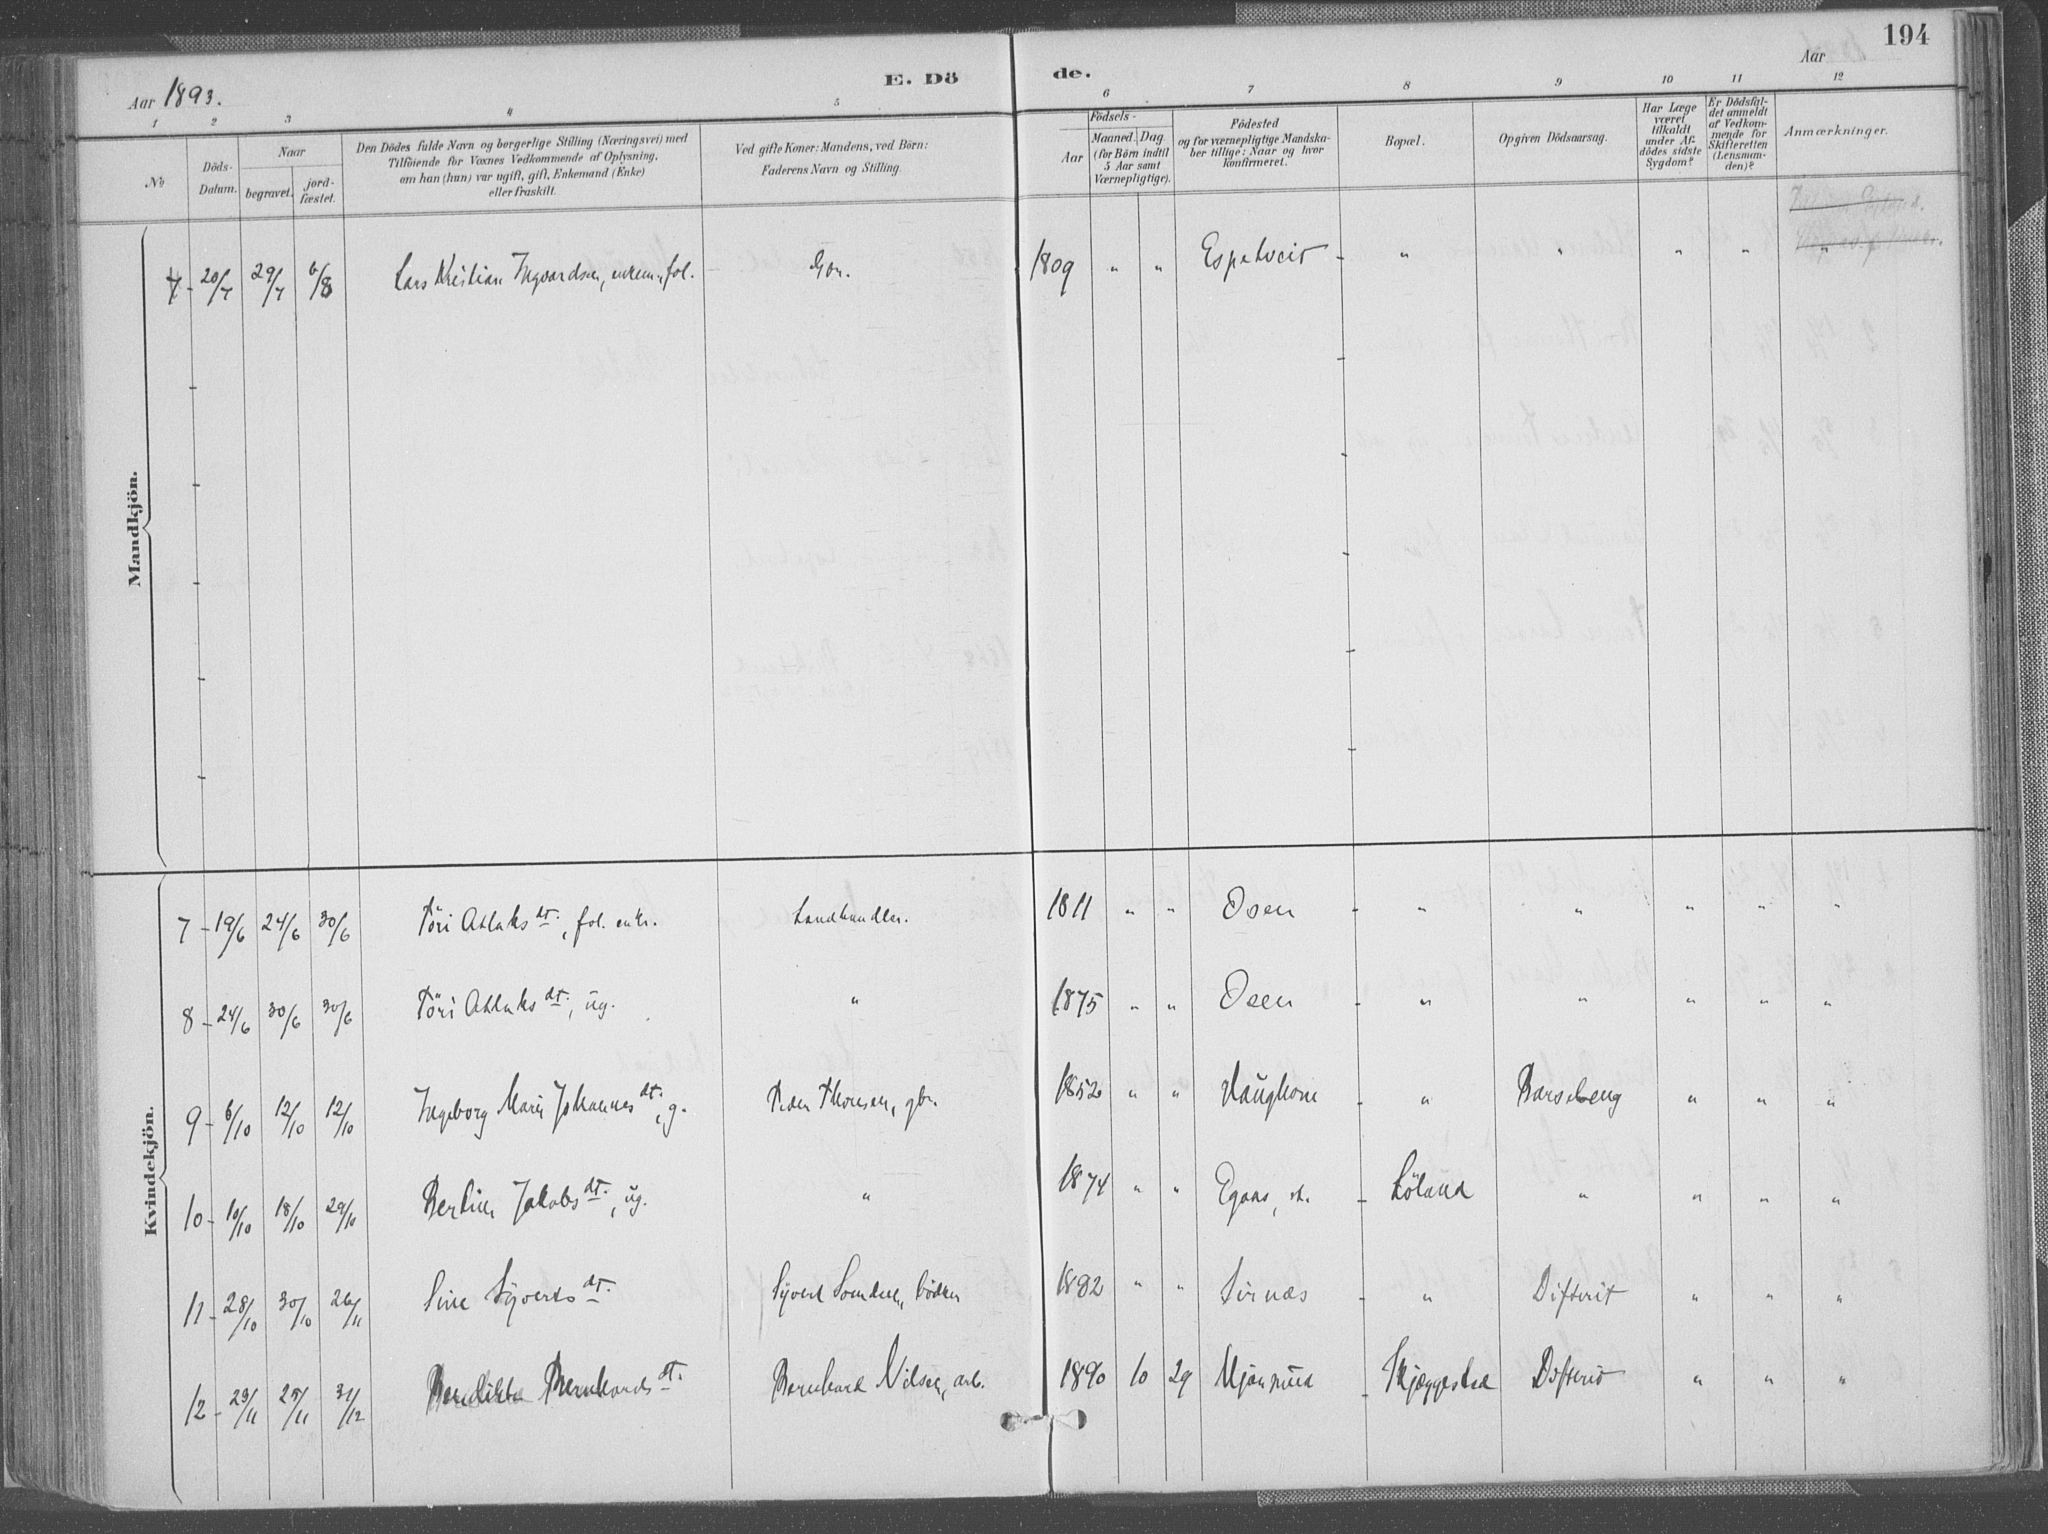 194
Aar 1893.
E. Dö de.
Aar
1 2 3 4 5 6 7 8 9 10 11 12
No
Döds-Datum.
Naar
begravet.
jord-fæstet.
Den Dödes fulde Navn og borgerlige Stilling (Næringsvei) med
Tilföiende for Voxnes Vedkommende af Oplysning,
om han (hun) var ugift, gift, Enkemand (Enke)
eller fraskilt.
Ved gifte Koner: Mandens, ved Börn:
Faderens Navn og Stilling.
Födsels-
Aar
Maaned. Dag.
(for Börn indtil
5 Aar samt
Værnepligtige).
Födested
og for værnepligtige Mandska-
ber tillige: Naar og hvor
konfirmeret.
Bopæl.
Opgiven Dödsaarsag.
Har Læge
været
tilkaldt
under Af-
dödes sidste
Sygdom?
Er Dödsfal-
det anmeldt
af Vedkom-
mende for
Skifteretten
(Lensman-
den)?
Anmærkninger.
Mandkjön.
7 - 20/7 29/7 6/8 Lars Kristian Ingvardsen, enkem., fol. Gbr. 1809 " " Espetveit - " " " " "
Kvindekjön.
7 - 19/6 24/6 30/6 Töri Atlaks dt., fol. enke. Landhandler. 1811 " " Osen - " " " " "
8 - 24/6 30/6 30/6 Töri Atlaks dt., ug. " 1875 " " Osen - " " " " "
9 - 6/10 12/10 12/10 Ingeborg Marie Johannes dt., g. Peder Thorsen, gbr. 1852 " " Haughom - " Barseleng " " "
10 - 10/10 18/10 29/10 Berline Jakobs dt., ug. " 1874 " " Egaas, - Löland " " " "
11 - 28/10 30/10 26/11 Sine Syverts dt. Syvert bödker 1882 " " Sirnæs - " Difterit " " "
12 - 23/11 25/11 31/12 Bendikte Bernhards dt. Bernhard Nilsen, arb. 1890 10 29 Mjönmua - Skjæggestad Difterit " " "